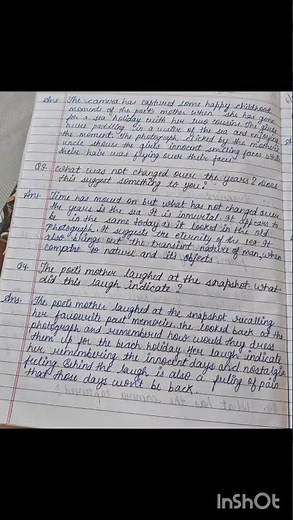 Ans The camera has captured some happy childhood
moments of the poet's mother when she has gone
for a sea holiday with her two cousins. The girls
were paddling in a water of the sea and enjoying
the moment. The photograph clicked by the mother's
uncle shows the girls innocent smiling faces while
their hair was flying over their face.
Q3. What was not changed over the years? Does
this suggest something to you?
Ans. Time has moved on but what has not changed over
the years is the sea. It is immortal. It appears to
be in the same today as it looked in this old
photograph. It suggests the eternity of the sea. It
also brings out the transient nature of man, when
compared to nature and its objects
Q4. The poet's mother laughed at the snapshot what
did this laugh indicate?
Ans: The poet's mother laughed at the snapshot recalling
her favourite past memories. She looked back at the
photograph and remembered how would they dress
them up for the beach holiday. Her laugh indicate
her remembering the innocent days and nostalgic
feeling. Behind the laugh is also a feeling of pain
that those days won't be back.
InShOt